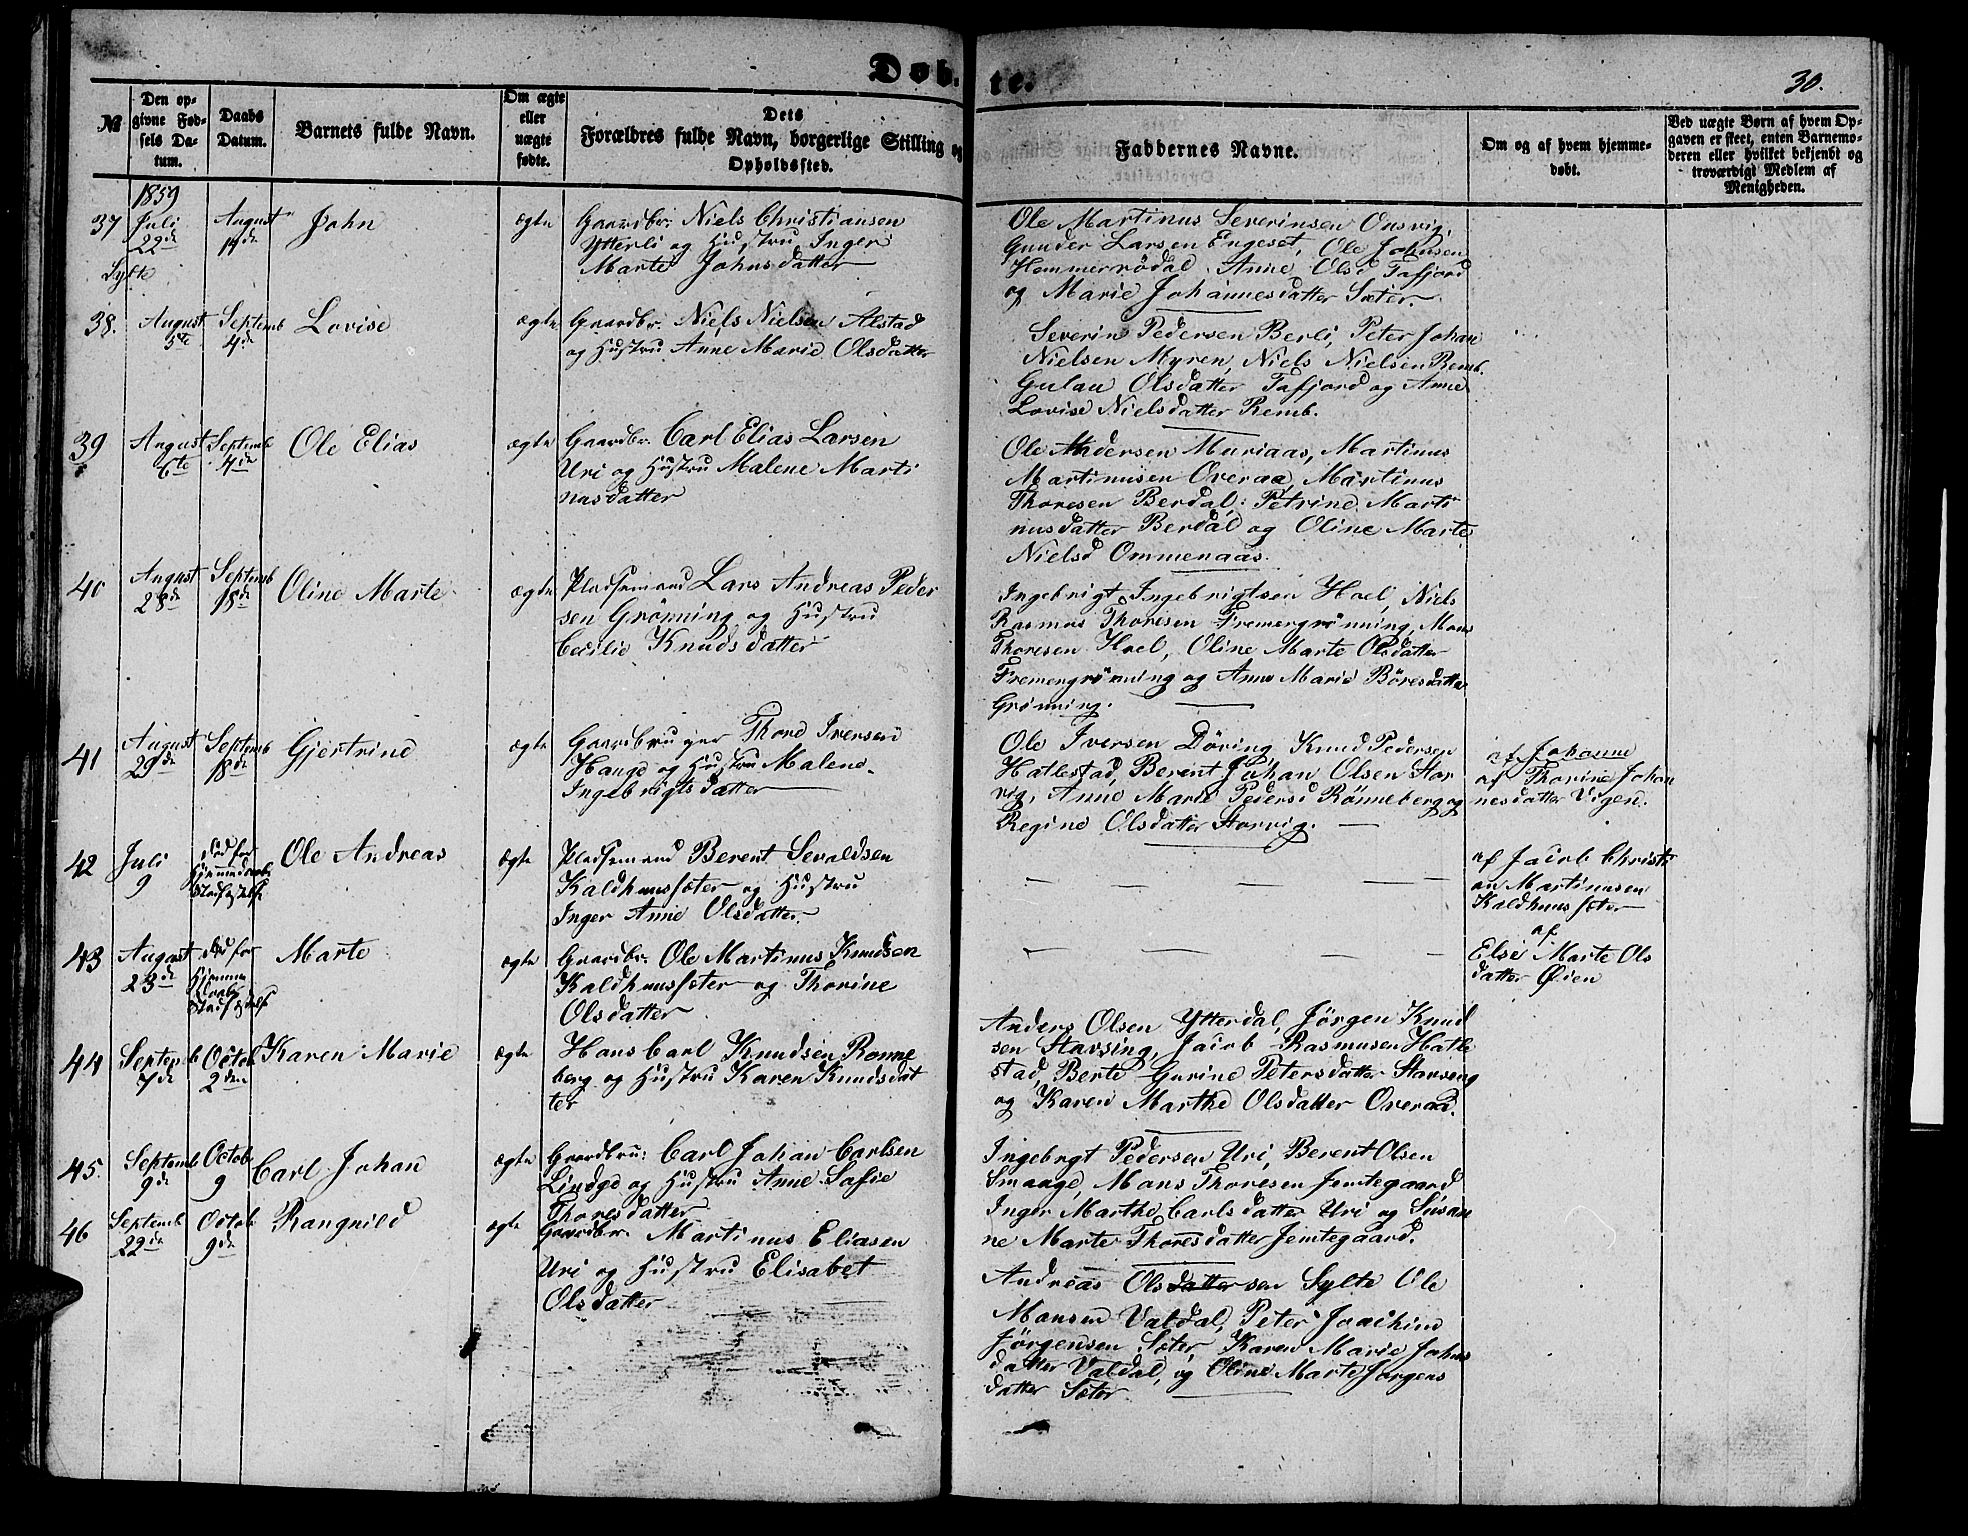 Døb-
te.
30.
№
Den op-
givne Fød-
sels Da-
tum.
Daabs
Datum.
Barnets fulde Navn.
Om ægte
eller
uægte
fødte.
Dets
Forældres fulde Navn, borgerlige Stilling og
Opholdssted.
Faddernes Navne.
Om og af hvem hjemme-
døbt.
Ved uægte Børn af hvem Op-
gaven er skeet, enten Barnemo-
deren eller hvilket bekjendt og
troværdigt Medlem af
Menigheden.
1859
37
Juli
22de
Sylte
August
John
ægte
Gaardbr. Niels Christiansen
Ytterli og Hustru Inger
Marte Johnsdatter
Ole Martinus Severinsen Onsvig,
Gunder Larsen Engeset, Ole Johnsen
Hammerrödal, Anne Olsd Tafjord
og Marie Johannesdatter Sæter.
38.
August
5te
Septemb
4de
Lovise
ægte
Gaardbr. Niels Nielsen Alstad
og Hustru Anne Marie Olsdatter
Severin Pedersen Berli, Peter Johan
Nielsen Myren, Niels Nielsen Remb.
Gulau Olsdatter Tafjord og Anne
Lovise Nielsdatter Remb.
39
August
6te
Septemb
4de
Ole Elias
ægte
Gaardbr. Carl Elias Larsen
Uri og Hustru Malene Marti
nusdatter
Ole Andersen Muriaas, Martinus
Martinusen Overaa, Martinus
Thoresen Berdal, Petrine Marti
nusdatter Berdal og Oline Marte
Nielsd Ommenaas.
40
August
28de
Septemb
18de
Oline Marte
ægte
Pladsemand Lars Andreas Peder
sen Grönning og Hustru
Cecilie Knudsdatter
Ingebrigt Ingebrigtsen Hoel, Niels
Rasmus Thoresen Fremergrönning, Mons
Thoresen Hoel, Oline Marte Olsdatter
Fremengrönning og Anne Marie Böresdatter
Grönning.
41
August
29de
Septemb
18de
Gjertrine
ægte
Gaardbruger Thore Iversen
Hauge og Hustru Malene
Ingebrigtsdatter
Ole Iversen Döving, Knud Pedersen
Hatlestad, Berent Johan Olsen Stor
vig, Anne Marie Pedersd Rönneberg og
Regine Olsdatter Storvig.
af Johanne
af Thorine Johan
nesdatter Vigen.
42
Juli
9
död før
Hjemmedaabs
Stadfæstelse
Ole Andreas
ægte
Pladsemand Berent Sevaldsen
Kaldhussæter og Hustru
Inger Anne Olsdatter
af Jacob Christi
an Martinusen
Kaldhussæter
43
August
23de
död før
Hjemme
daabs
Stadfæstelse
Marte
ægte
Gaardbr. Ole Martinus Knudsen
Kaldhussæter og Thorine
Olsdatter
af
Else Marte Ols
datter Øien
44
Septemb
7de
Octob
2den
Karen Marie
ægte
Hans Carl Knudsen Ronne
berg og Hustru Karen Knudsdat
ter
Anders Olsen Ytterdal, Jörgen Knud
sen Stavsing, Jacob Rasmusen Hatle
stad, Berte Gurine Petersdatter Stavseng
og Karen Marthe Olsdatter Overaa.
45.
Septemb
9de
Octob
9
Carl Johan
ægte
Gaardbru: Carl Johan Carlsen
Lindge og Hustru Anne Sofie
Thoresdatter
Ingebrgt Pedersen Uri, Berent Olsen
Smaage, Mons Thoresen Jemtegaard
Inger Marthe Carlsdatter Uri og Susan
ne Marte Thoresdatter Jemtegaard.
46
Septemb
22de
Octob
9de
Rangnild
ægte
Gaardbr. Martinus Eliasen
Uri og Hustru Elisabet
Olsdatter
Andreas Olsdatter sen Sylte Ole
Monsen Valdal, Peter Joachim
Jörgensen Sæter, Karen Marie Johns
datter Valdal, og Oline Marte Jørgens
datter Sæter